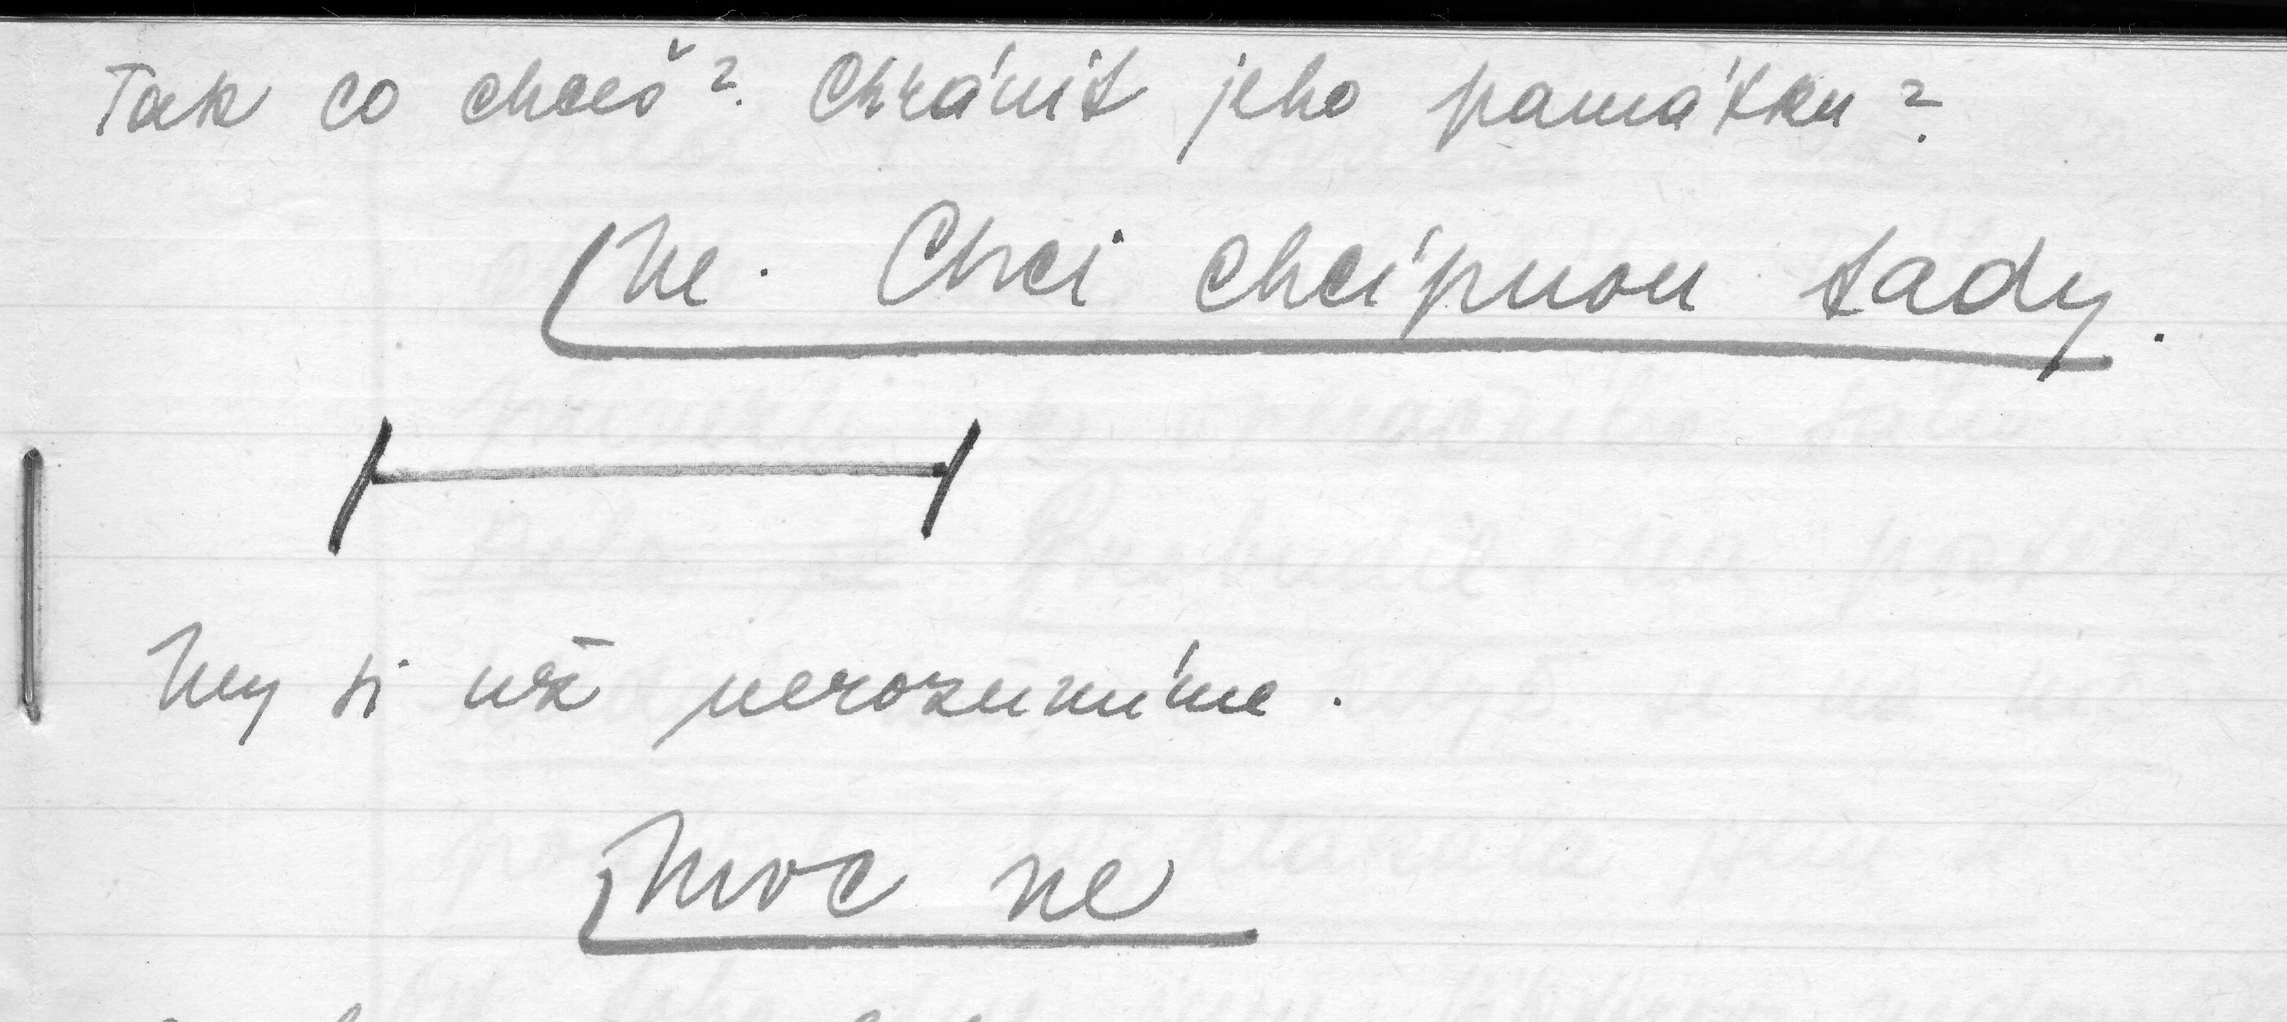 Tak co chceš? Chránit jeho památku?
Ne. Chci chcípnou tady.
My si už nerozumíme.
Moc ne